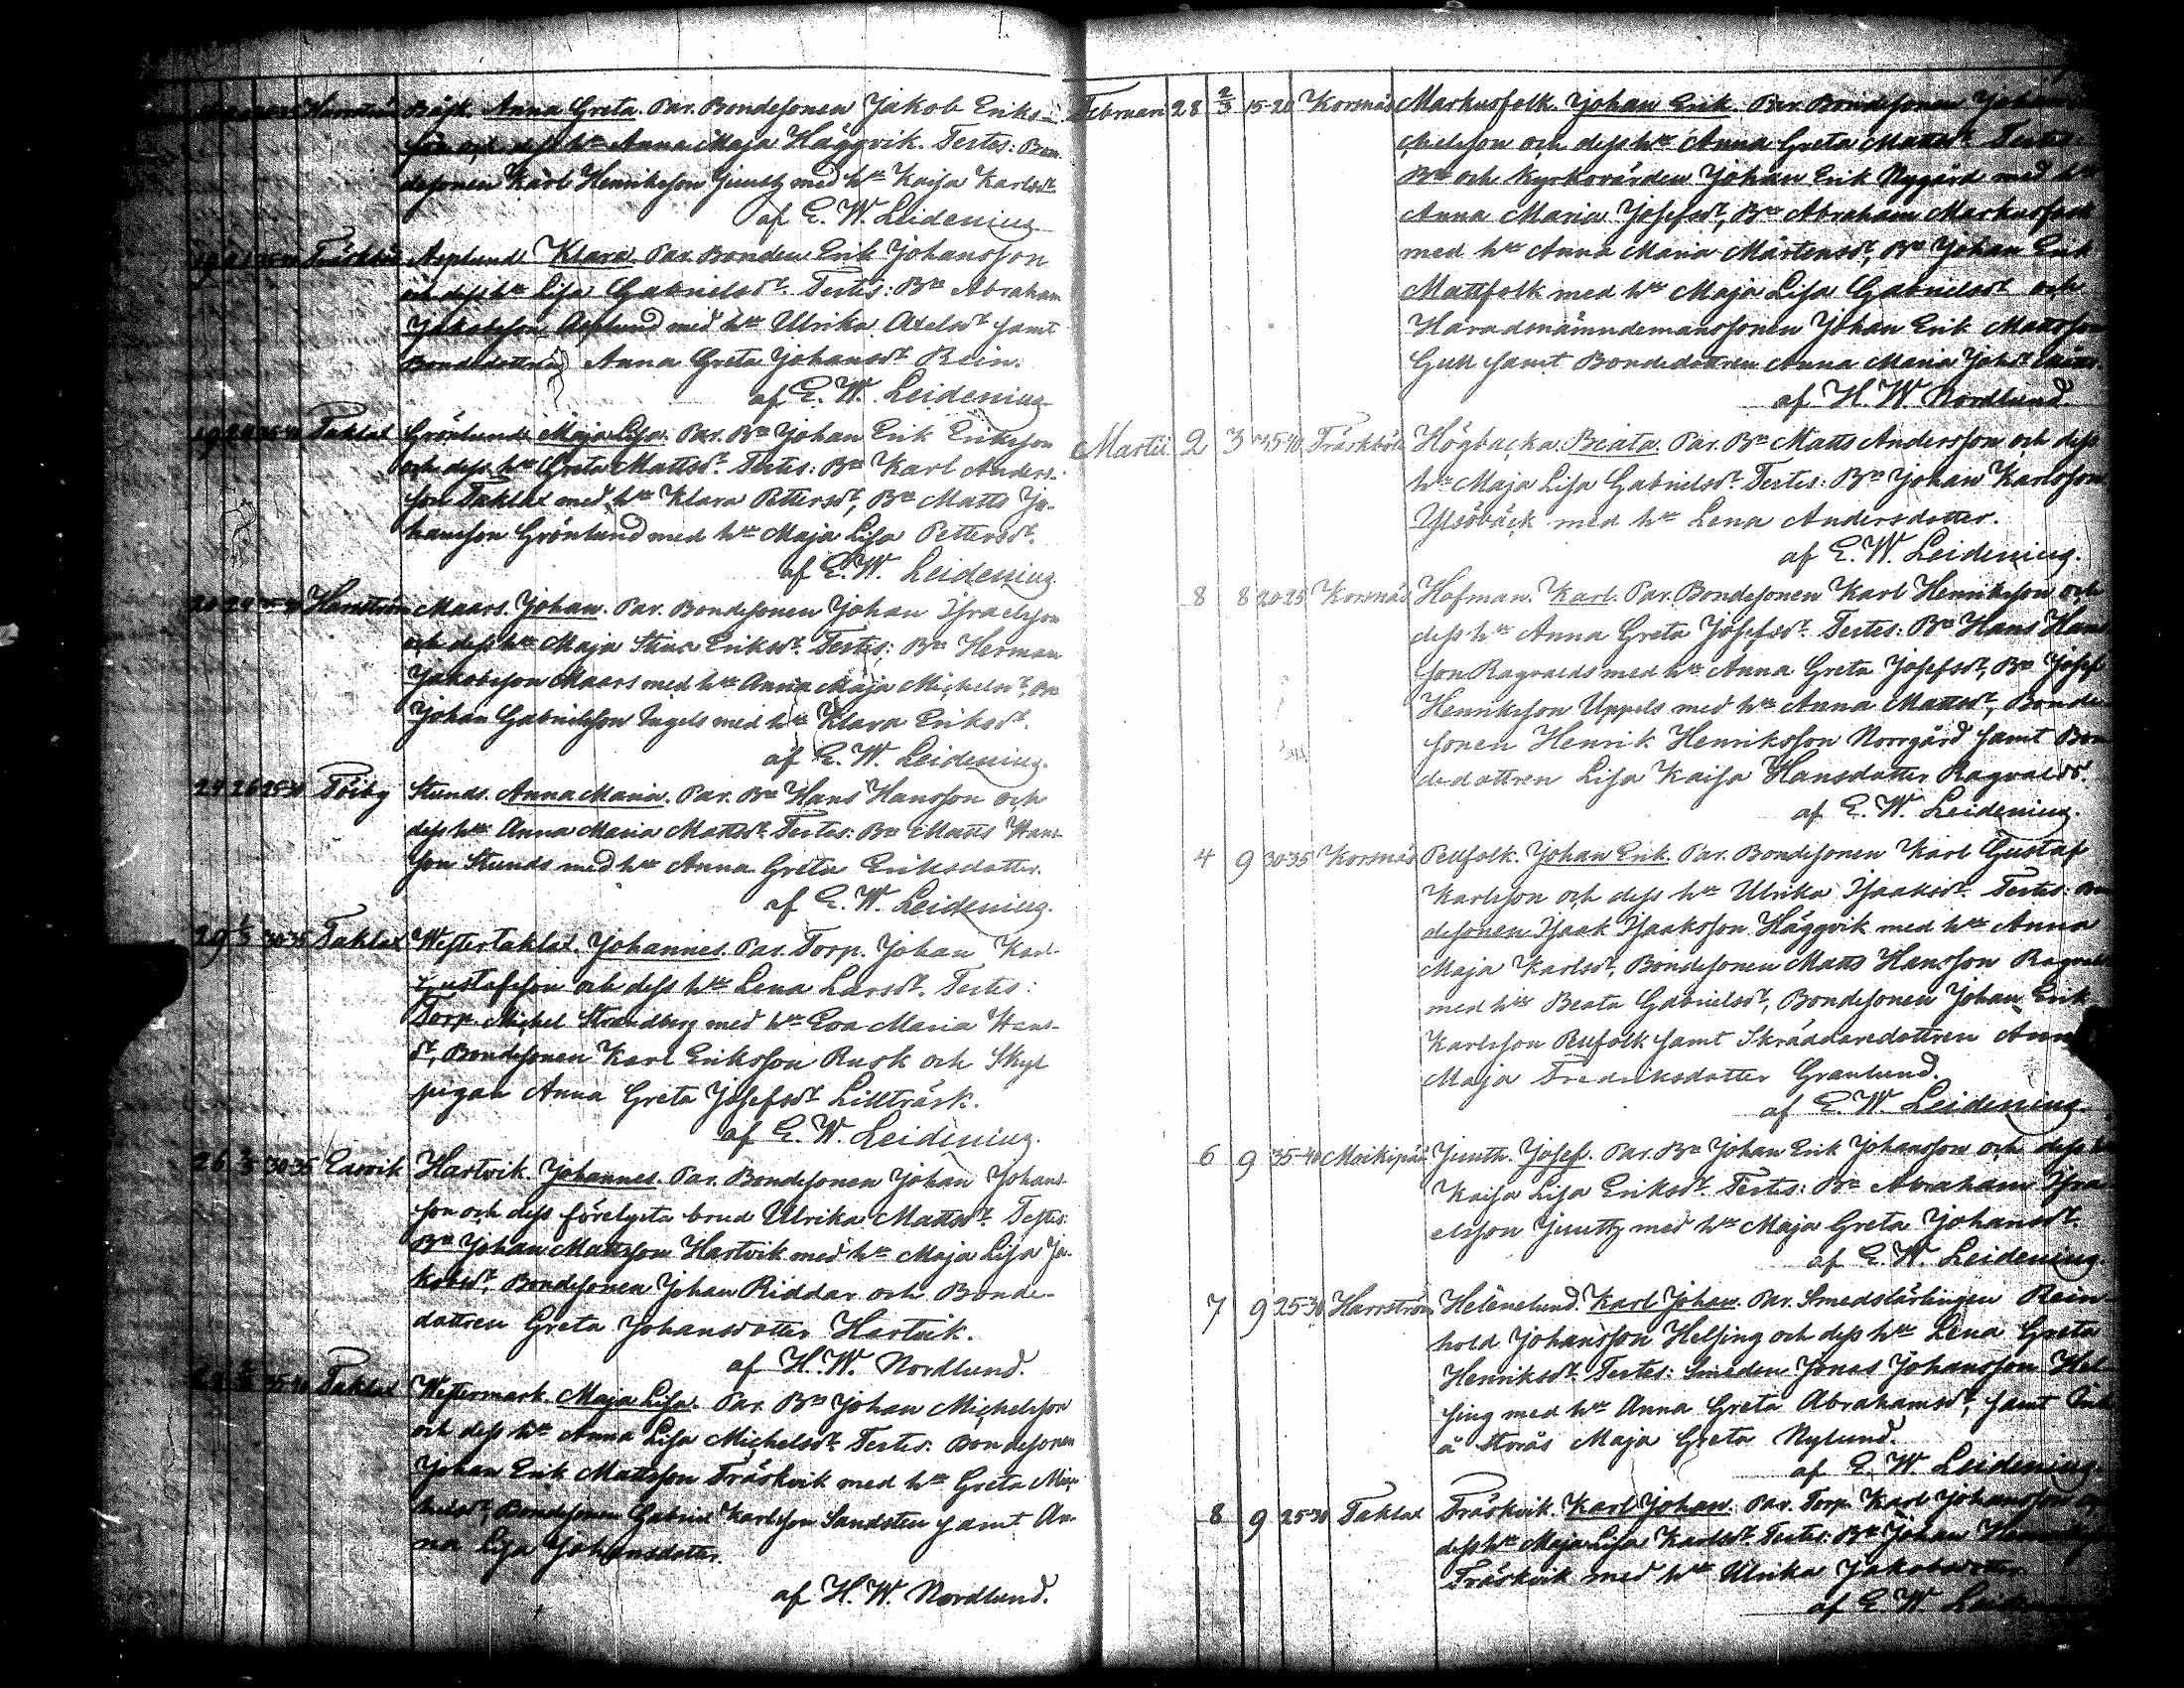 Harrström Båsk. Anna Greta. Par. Bondesonen Jakob Eriks-
son och dess h:u Anna Maja Häggvik. Testes: Bon-
desonen Karl Henriksson Juuth med h:u Kaisa Karlsd:r
af E. W. Leidenius.
19 Träskböle Asplund. Klara. Par. Bonden Erik Johansson
och dess h:u Lisa Gabrielsd:r. Testes: B:n Abraham
Jakobsson Asplund med h:u Ulrika Axelsd:r samt
Bondedottren Anna Greta Johansd:r Rein.
af E. W. Leidenius.
19 Taklax Grönlund. Maja Lisa. Par. B:n Johan Erik Eriksson
och dess h:u Greta Mattsd:r. Testes: B:n Karl Anders-
son Taklax med h:u Klara Pettersd:r, B:n Matts Jo-
hansson Grönlund med h:u Maja Lisa Pettersd:r.
af E. W. Leidenius.
20 24 Harrström Maars. Johan. Par. Bondesonen Johan Israelsson
och dess h:u Maja Stina Eriksd:r. Testes: B:n Herman
Jakobsson Maars med h:u Anna Maja Michelsd:r, B:n
Johan Gabrielsson Ingels med h:u Klara Eriksd:r.
af E. W. Leidenius.
24 26 25-30 Töiby Stunds. Anna Maria. Par. B:n Hans Hansson och
dess h:u Anna Maria Mattsd:r. Testes: B:n Matts Hans-
son Stunds med h:u Anna Greta Eriksdotter.
af E. W. Leidenius.
29 1/3 30-35 Taklax Westertaklax. Johannes. Par. Torp. Johan Karl
Gustafsson och dess h:u Lena Larsd:r. Testes:
Torp. Michel Strandberg med h:u Eva Maria Hans-
d:r, Bondesonen Karl Eriksson Rusk och Skyl
pigan Anna Greta Josefsd:r Lillträsk.
af E. W. Leidenius.
26 2/3 30-35 Edsvik Hartvik. Johannes. Par. Bondesonen Johan Johans-
son och dess förelysta brud Ulrika Mattsd:r. Testes:
B:n Johan Mattsson Hartvik med h:u Maja Lisa Ja-
kobsd:r, Bondesonen Johan Riddar och Bonde-
dottren Greta Johansdotter Hartvik.
af H. W. Nordlund.
35-40 Taklax Westermark. Maja Lisa. Par. B:n Johan Michelsson
och dess h:u Anna Lisa Michelsd:r. Testes: Bondesonen
Johan Erik Mattsson Träskvik med h:u Greta Mic-
helsd:r, Bondesonen Gabriel Karlsson Sandsten samt An-
na Lisa Johansdotter.
af H. W. Nordlund.
Februari 28 2/3 15-20 Korsnäs Markusfolk. Johan Erik. Par. Bondesonen Johan
Michelsson och dess h:u Anna Greta Mattsd:r. Testes:
B:n och Kyrkovärden Johan Erik Nygård med h:u
Anna Maria Josefsd:r, B:n Abraham Markusfolk
med h:u Anna Maria Mårtensd:r, B:n Johan Erik
Mattfolk med h:u Maja Lisa Gabrielsd:r och
Häradsnämndemanssonen Johan Erik Mattsson
Gull samt Bondedottren Anna Maria Johsd:r
af H. W. Nordlund.
Martii 2 3 35-40 Träskböle Högbacka. Beata. Par. B:n Matts Andersson och dess
h:u Maja Lisa Gabrielsd:r. Testes: B:n Johan Karlsson
Ylsöbäck med h:u Lena Andersdotter.
af E. W. Leidenius.
8 8 20-25 Korsnäs Hofman. Karl. Par. Bondesonen Karl Henriksson och
dess h:u Anna Greta Josefsd:r. Testes: B:n Hans Hans-
son Ragvalds med h:u Anna Greta Josefsd:r, B:n Josef
Henriksson Uppels med h:u Anna Mattsd:r, Bonde-
sonen Henrik Henriksson Norrgård samt Bon-
dedottren Lisa Kaisa Hansdotter Ragvalds.
af E. W. Leidenius.
4 9 30-35 Korsnäs Pellfolk. Johan Erik. Par. Bondesonen Karl Gustaf
Karlsson och dess h:u Ulrika Isaaksd:r. Testes: Bon-
desonen Isaak Isaaksson Häggvik med h:u Anna
Maja Karlsd:r, Bondesonen Matts Hansson Ragvalds
med h:u Beata Gabrielsd:r, Bondesonen Johan Erik
Karlsson Pellfolk samt Skräddaredottren Anna
Maja Fredriksdotter Granlund.
af E. W. Leidenius.
6 9 35-40 Moikipää Juuth. Josef. Par. B:n Johan Erik Johansson och dess h:u
Kaisa Lisa Eriksd:r. Testes: B:n Abraham Isra-
elsson Juuth med h:u Maja Greta Johansd:r.
af E. W. Leidenius.
7 9 25-30 Harrström Helenelund. Karl Johan. Par. Smedslärlingen Rein-
hold Johansson Helsing och dess h:u Lena Greta
Henriksd:r. Testes: Smeden Jonas Johansson Hel-
sing med h:u Anna Greta Abrahamsd:r, samt Enk.
å Storås Maja Greta Nylund.
af E. W. Leidenius.
8 9 25-30 Taklax Träskvik. Karl Johan. Par. Torp. Karl Johansson och
dess h:u Maja Lisa Karlsd:r. Testes: B:n Johan Henriksson
Träskvik med h:u Ulrika Jakobsdotter.
af E. W. Leidenius.